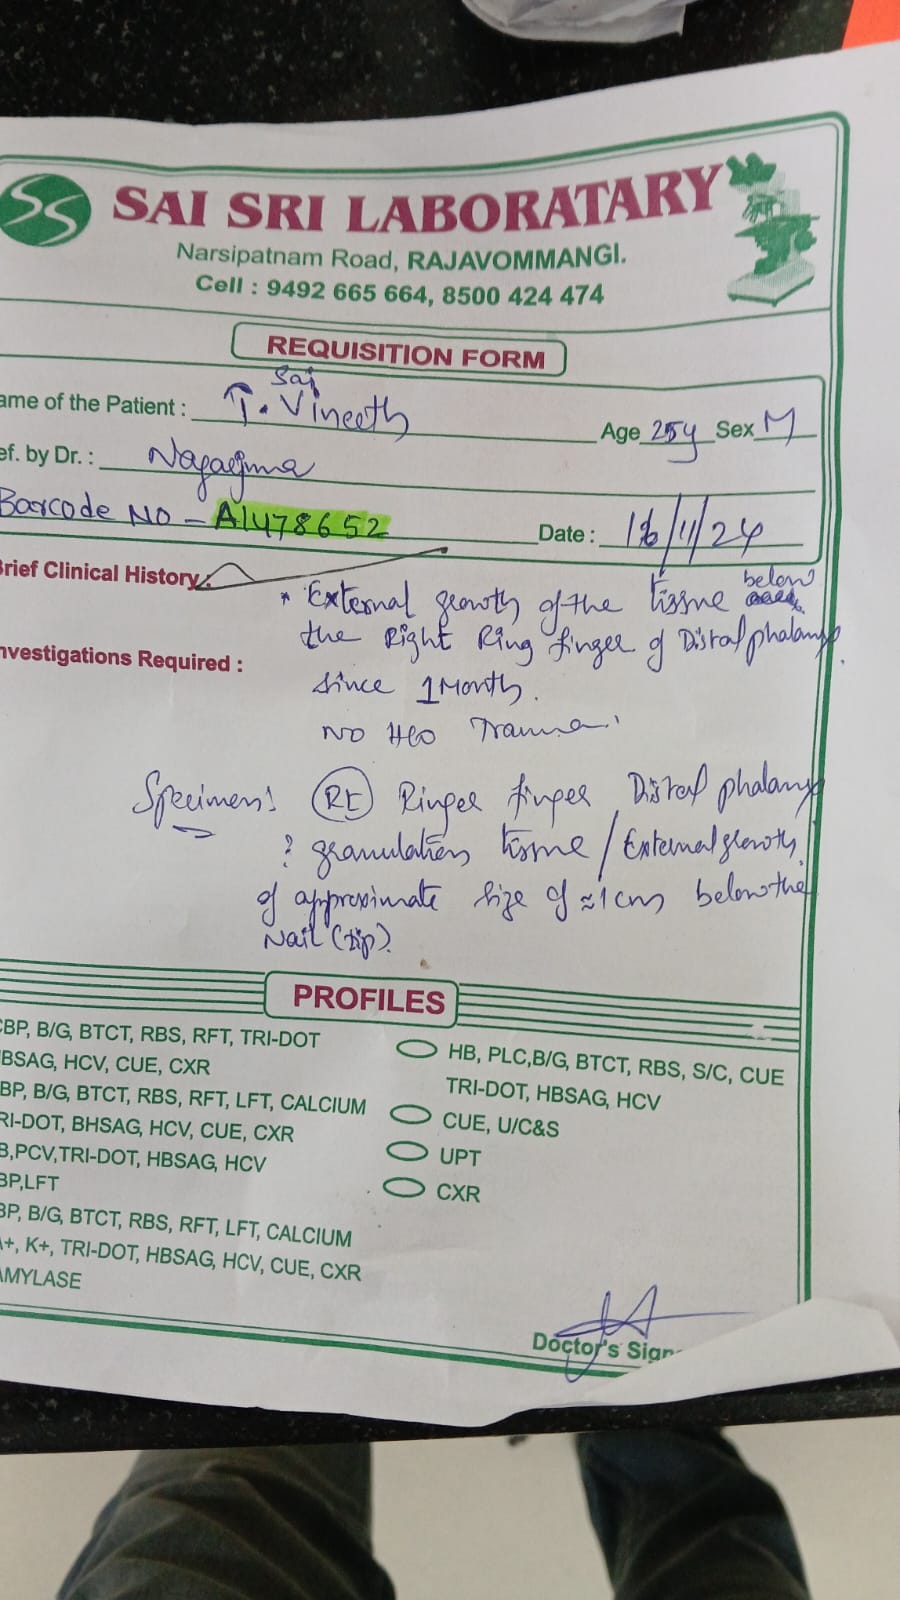 SS
SAI SRI LABORATARY
Narsipatnam Road, RAJAVOMMANGI.
Cell : 9492 665 664, 8500 424 474
REQUISITION FORM
ame of the Patient : T. Sai Vineeth
Age 25y Sex M
ef. by Dr. :
Barcode NO - A1478652
Date : 16/11/24
rief Clinical History :
* External growth of the tissue below
the Right Ring finger of Distal phalanx
since 1 Month.
nvestigations Required :
NO H/O Trauma.
Specimen: RT Ringer finger Distal phalanx
? granulation tissue / External growth
of approximate size of ≈1cm below the
Nail (tip).
PROFILES
CBP, B/G, BTCT, RBS, RFT, TRI-DOT
BSAG, HCV, CUE, CXR
BP, B/G, BTCT, RBS, RFT, LFT, CALCIUM
RI-DOT, BHSAG, HCV, CUE, CXR
B,PCV,TRI-DOT, HBSAG, HCV
BP,LFT
BP, B/G, BTCT, RBS, RFT, LFT, CALCIUM
A+, K+, TRI-DOT, HBSAG, HCV, CUE, CXR
AMYLASE
HB, PLC,B/G, BTCT, RBS, S/C, CUE
TRI-DOT, HBSAG, HCV
CUE, U/C&S
UPT
CXR
Doctor's Sign